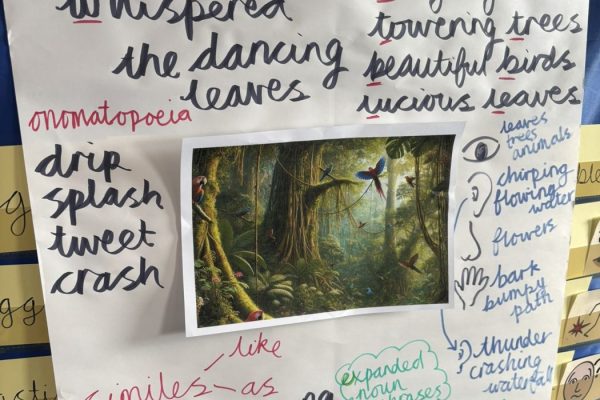 whispered
the dancing
leaves
towering trees
beautiful birds
lucious leaves
onomatopoeia
drip
splash
tweet
crash
leaves
trees
animals
chirping
flowing
water
flowers
bark
bumpy
path
thunder
crashing
waterfall
like
similes as
expanded
noun
phrases